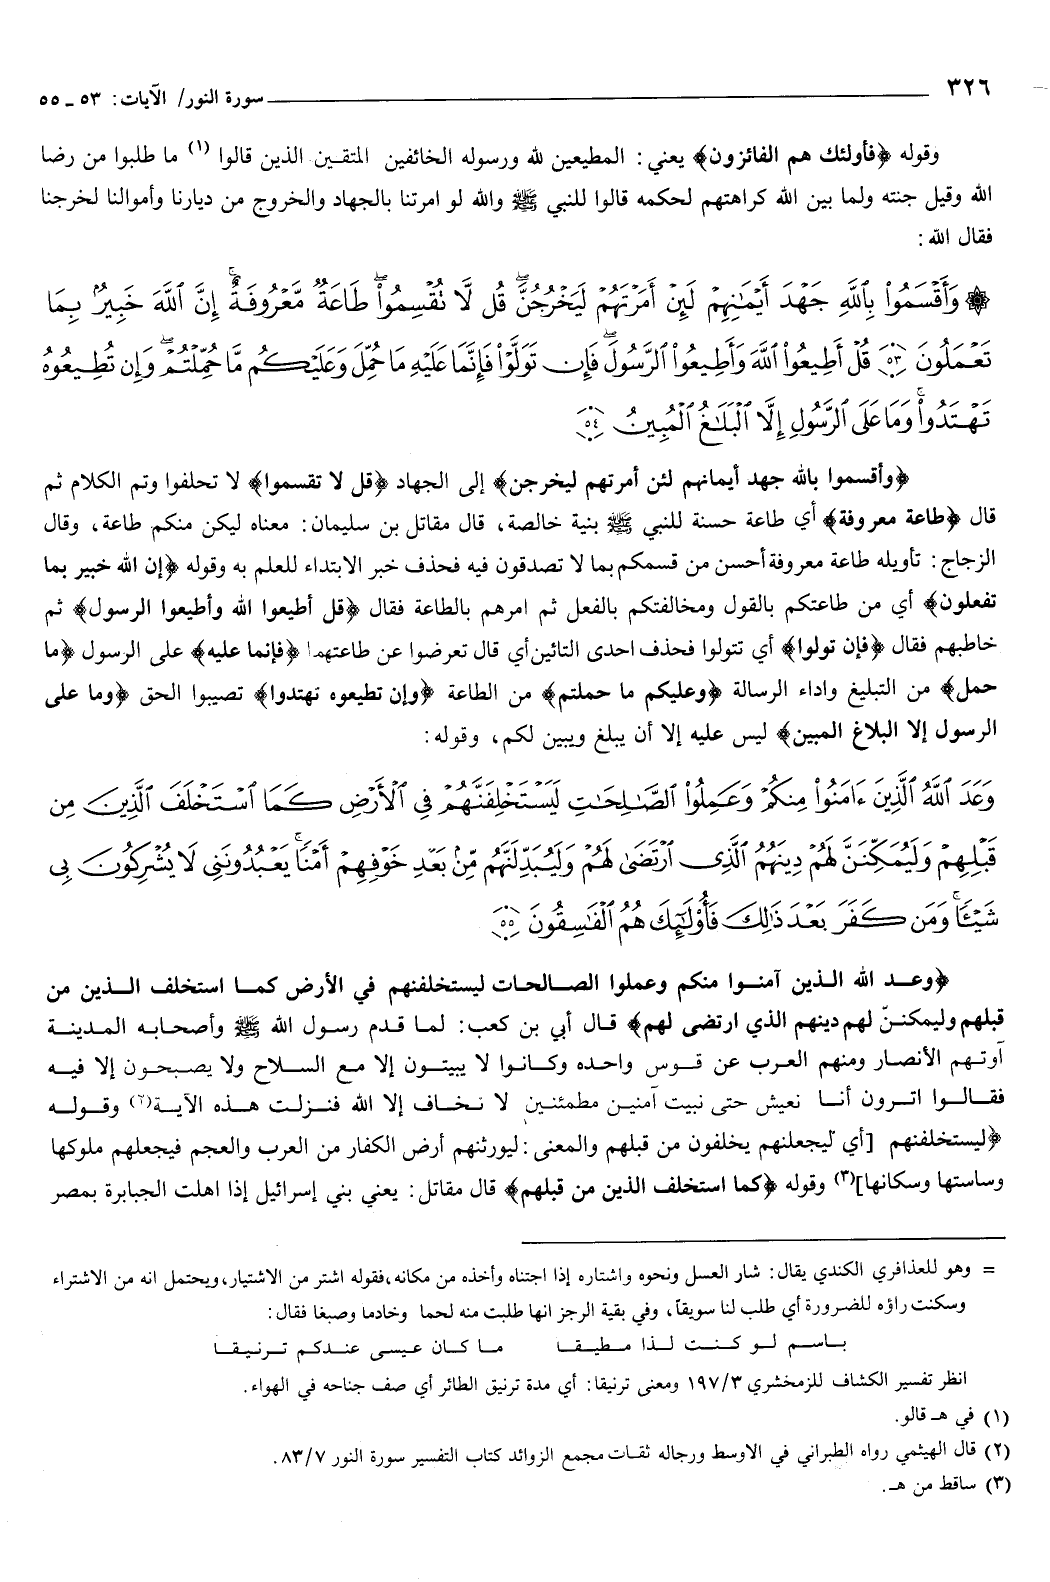 ٣٢٦ سورة النور/ الآيات: ٥٣ ـ ٥٥
وقوله ﴿فأولئك هم الفائزون﴾ يعني: المطيعين لله ورسوله الخائفين المتقين الذين قالوا (١) ما طلبوا من رضا
الله وقيل جنته ولما بين الله كراهتهم لحكمه قالوا للنبي ﷺ والله لو امرتنا بالجهاد والخروج من ديارنا وأموالنا لخرجنا
فقال الله:
۞ وَأَقْسَمُوا۟ بِٱللَّهِ جَهْدَ أَيْمَٰنِهِمْ لَئِنْ أَمَرْتَهُمْ لَيَخْرُجُنَّ ۖ قُل لَّا تُقْسِمُوا۟ ۖ طَاعَةٌ مَّعْرُوفَةٌ ۚ إِنَّ ٱللَّهَ خَبِيرٌۢ بِمَا
تَعْمَلُونَ ٥٣ قُلْ أَطِيعُوا۟ ٱللَّهَ وَأَطِيعُوا۟ ٱلرَّسُولَ ۖ فَإِن تَوَلَّوْا۟ فَإِنَّمَا عَلَيْهِ مَا حُمِّلَ وَعَلَيْكُم مَّا حُمِّلْتُمْ ۖ وَإِن تُطِيعُوهُ
تَهْتَدُوا۟ ۚ وَمَا عَلَى ٱلرَّسُولِ إِلَّا ٱلْبَلَٰغُ ٱلْمُبِينُ ٥٤
﴿وأقسموا بالله جهد أيمانهم لئن أمرتهم ليخرجن﴾ إلى الجهاد ﴿قل لا تقسموا﴾ لا تحلفوا وتم الكلام ثم
قال ﴿طاعة معروفة﴾ أي طاعة حسنة للنبي ﷺ بنية خالصة، قال مقاتل بن سليمان: معناه ليكن منكم طاعة، وقال
الزجاج: تأويله طاعة معروفة أحسن من قسمكم بما لا تصدقون فيه فحذف خبر الابتداء للعلم به وقوله ﴿إن الله خبير بما
تفعلون﴾ أي من طاعتكم بالقول ومخالفتكم بالفعل ثم امرهم بالطاعة فقال ﴿قل أطيعوا الله وأطيعوا الرسول﴾ ثم
خاطبهم فقال ﴿فإن تولوا﴾ أي تتولوا فحذف احدى التائين أي قال تعرضوا عن طاعتهما ﴿فإنما عليه﴾ على الرسول ﴿ما
حمل﴾ من التبليغ واداء الرسالة ﴿وعليكم ما حملتم﴾ من الطاعة ﴿وإن تطيعوه تهتدوا﴾ تصيبوا الحق ﴿وما على
الرسول إلا البلاغ المبين﴾ ليس عليه إلا أن يبلغ ويبين لكم، وقوله:
وَعَدَ ٱللَّهُ ٱلَّذِينَ ءَامَنُوا۟ مِنكُمْ وَعَمِلُوا۟ ٱلصَّٰلِحَٰتِ لَيَسْتَخْلِفَنَّهُمْ فِى ٱلْأَرْضِ كَمَا ٱسْتَخْلَفَ ٱلَّذِينَ مِن
قَبْلِهِمْ وَلَيُمَكِّنَنَّ لَهُمْ دِينَهُمُ ٱلَّذِى ٱرْتَضَىٰ لَهُمْ وَلَيُبَدِّلَنَّهُم مِّنۢ بَعْدِ خَوْفِهِمْ أَمْنًا ۚ يَعْبُدُونَنِى لَا يُشْرِكُونَ بِى
شَيْـًٔا ۚ وَمَن كَفَرَ بَعْدَ ذَٰلِكَ فَأُو۟لَٰٓئِكَ هُمُ ٱلْفَٰسِقُونَ ٥٥
﴿وعد الله الذين آمنوا منكم وعملوا الصالحات ليستخلفنهم في الأرض كما استخلف الذين من
قبلهم وليمكننّ لهم دينهم الذي ارتضى لهم﴾ قال أبي بن كعب: لما قدم رسول الله ﷺ وأصحابه المدينة
آوتهم الأنصار ومنهم العرب عن قوس واحده وكانوا لا يبيتون إلا مع السلاح ولا يصبحون إلا فيه
فقالوا اترون أنا نعيش حتى نبيت آمنين مطمئنين لا نخاف إلا الله فنزلت هذه الآية(٢) وقوله
﴿ليستخلفنهم [أي ليجعلنهم يخلفون من قبلهم والمعنى: ليورثنهم أرض الكفار من العرب والعجم فيجعلهم ملوكها
وساستها وسكانها](٣) وقوله ﴿كما استخلف الذين من قبلهم﴾ قال مقاتل: يعني بني إسرائيل إذا اهلت الجبابرة بمصر
= وهو للعذافري الكندي يقال: شار العسل ونحوه واشتاره إذا اجتناه وأخذه من مكانه، فقوله اشتر من الاشتيار، ويحتمل انه من الاشتراء
وسكنت راؤه للضرورة أي طلب لنا سويقاً، وفي بقية الرجز انها طلبت منه لحما وخادما وصبغا فقال:
باسم لو كنت لذا مطيقا ما كان عيسى عندكم ترنيقا
انظر تفسير الكشاف للزمخشري ١٩٧/٣ ومعنى ترنيقا: أي مدة ترنيق الطائر أي صف جناحه في الهواء.
(١) في هـ قالو.
(٢) قال الهيثمي رواه الطبراني في الاوسط ورجاله ثقات مجمع الزوائد كتاب التفسير سورة النور ٨٣/٧.
(٣) ساقط من هـ.